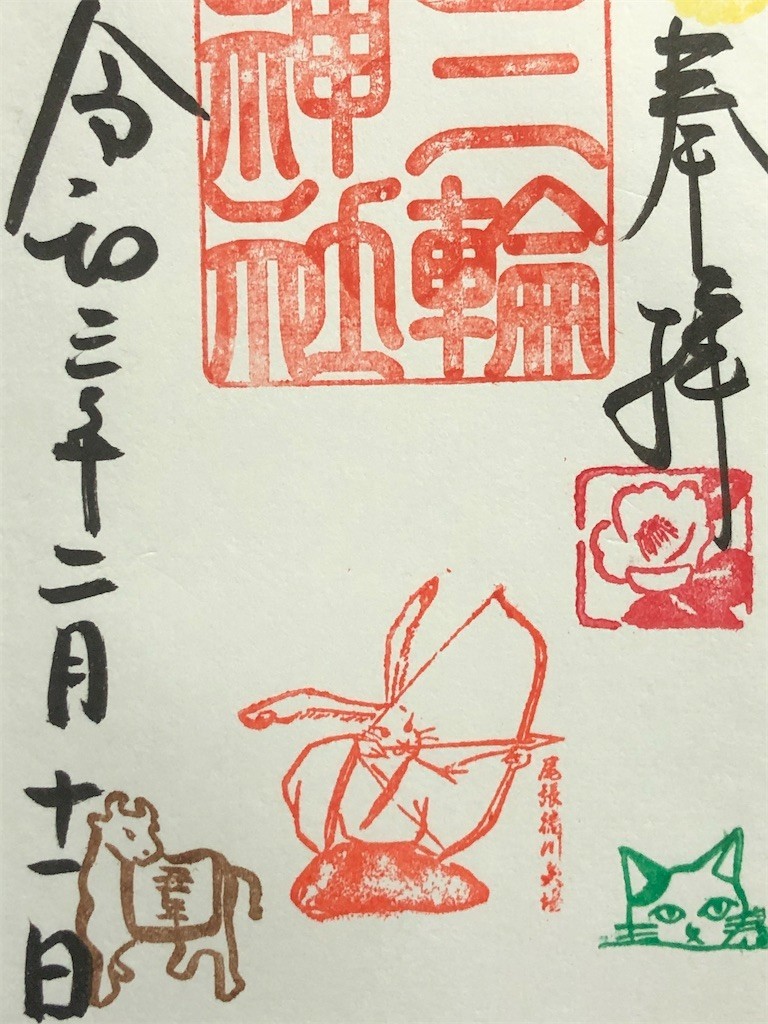 奉拝
三輪
神社
尾張徳川矢場
令和三年二月十一日
丑年